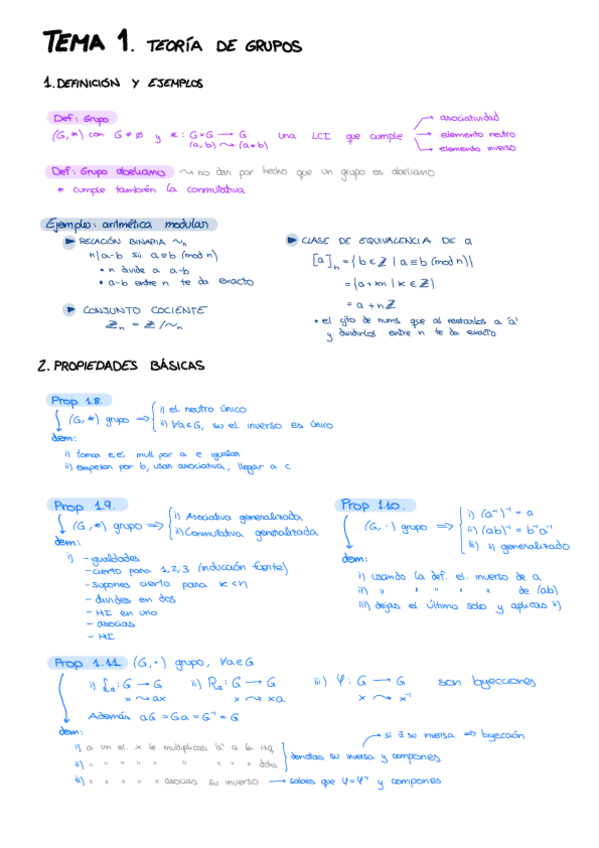 TEMA 1. TEORÍA DE GRUPOS
1. DEFINICIÓN Y EJEMPLOS
Def: Grupo
(G,*) con G ≠ ∅ y * : G×G → G una LCI que cumple
(a,b) ⤳ (a*b)
→ asociatividad
→ elemento neutro
→ elemento inverso
Def: Grupo abeliano ⤳ no dan por hecho que un grupo es abeliano
* cumple también la conmutativa
Ejemplo: aritmética modular
▶ RELACIÓN BINARIA ~n
n|a-b sii a≡b (mod n)
• n divide a a-b
• a-b entre n te da exacto
▶ CONJUNTO COCIENTE
ℤn = ℤ/~n
▶ CLASE DE EQUIVALENCIA DE a
[a]n = {b∈ℤ | a≡b (mod n)}
= {a+kn | k∈ℤ}
= a+nℤ
• el cjto de nums que al restarlos a 'a'
y dividirlos entre n te da exacto
2. PROPIEDADES BÁSICAS
Prop 1.8.
(G,*) grupo ⇒ { i) el neutro único
ii) ∀a∈G, su el. inverso es único
dem:
i) tomar e,e', mult. por a e igualas
ii) empezar por b, usar asociativa, llegar a c
Prop 1.9.
(G,*) grupo ⇒ { i) Asociativa generalizada
ii) Conmutativa generalizada
dem:
i) - igualdades
- cierto para 1,2,3 (inducción fuerte)
- supones cierto para k<n
- divides en dos
- HI en uno
- asocias
- HI
Prop 1.10.
(G,·) grupo ⇒ { i) (a⁻¹)⁻¹ = a
ii) (ab)⁻¹ = b⁻¹a⁻¹
iii) ii) generalizado
dem:
i) usando la def. el. inverso de a
ii) " " " " " de (ab)
iii) dejas el último solo y aplicas ii)
Prop 1.11 (G,·) grupo, ∀a∈G
i) La : G → G ii) Ra : G → G iii) Ψ : G → G son biyecciones
x ⤳ ax x ⤳ xa x ⤳ x⁻¹
Además aG = Ga = G⁻¹ = G
dem:
→ si ∃ su inversa ⇒ biyección
i) a un el. x le multiplicas 'a' a la izq
ii) " " " " " " " " dcha
} denotas su inversa y compones
iii) " " " " asocias su inverso → sabes que Ψ=Ψ⁻¹ y compones